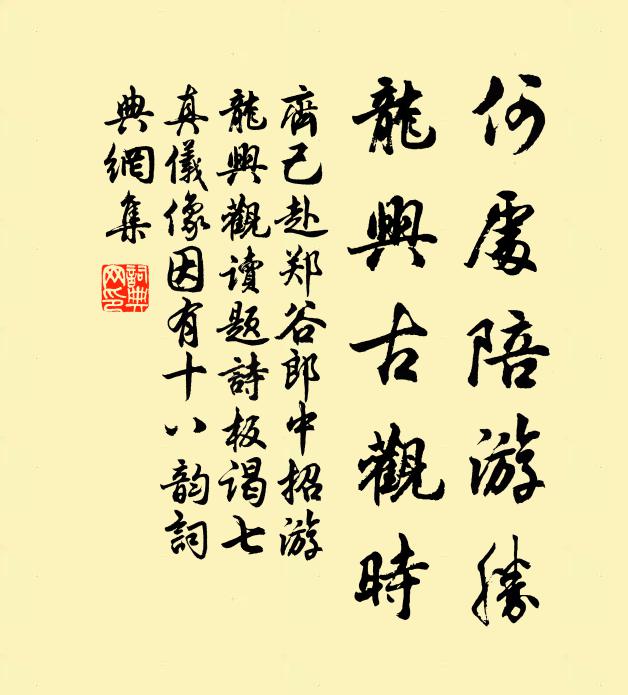 何處陪游勝
龍興古觀時
齊己赴郑谷郎中招游
龍興觀讀題詩板謁七
真儀像因有十八韵詞
典網集
詞典
网印